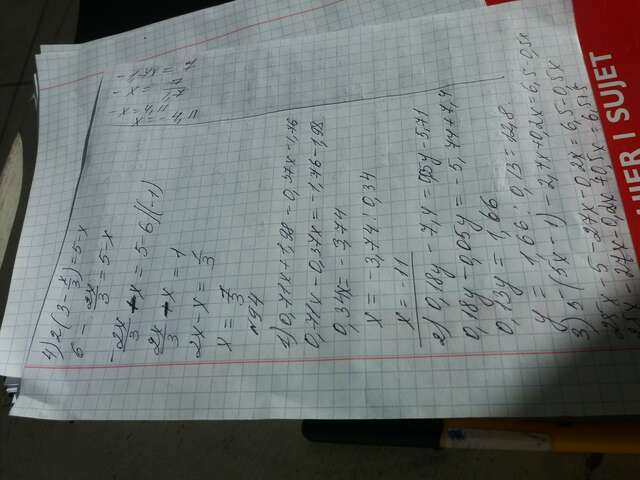 4) 2(3 - x/3) = 5 - x
6 - 2x/3 = 5 - x
- 2x/3 + x = 5 - 6 /(-1)
2x/3 - x = 1
2x - x = 1/3
x = 1/3
№94
1) 0,71x + 1,98 = 0,37x - 1,76
0,71x - 0,37x = -1,76 - 1,98
0,34x = -3,74
x = -3,74 : 0,34
x = -11
2) 0,18y - 7,4 = 0,05y - 5,71
0,18y - 0,05y = -5,71 + 7,4
0,13y = 1,66
y = 1,66 : 0,13 = 12,8
3) 5(5x - 1) - 2,7x + 0,2x = 6,5 - 0,5x
25x - 5 - 2,7x - 0,2x = 6,5 - 0,5x
-x = 4,11
x = -4,11
HIER I SUJET